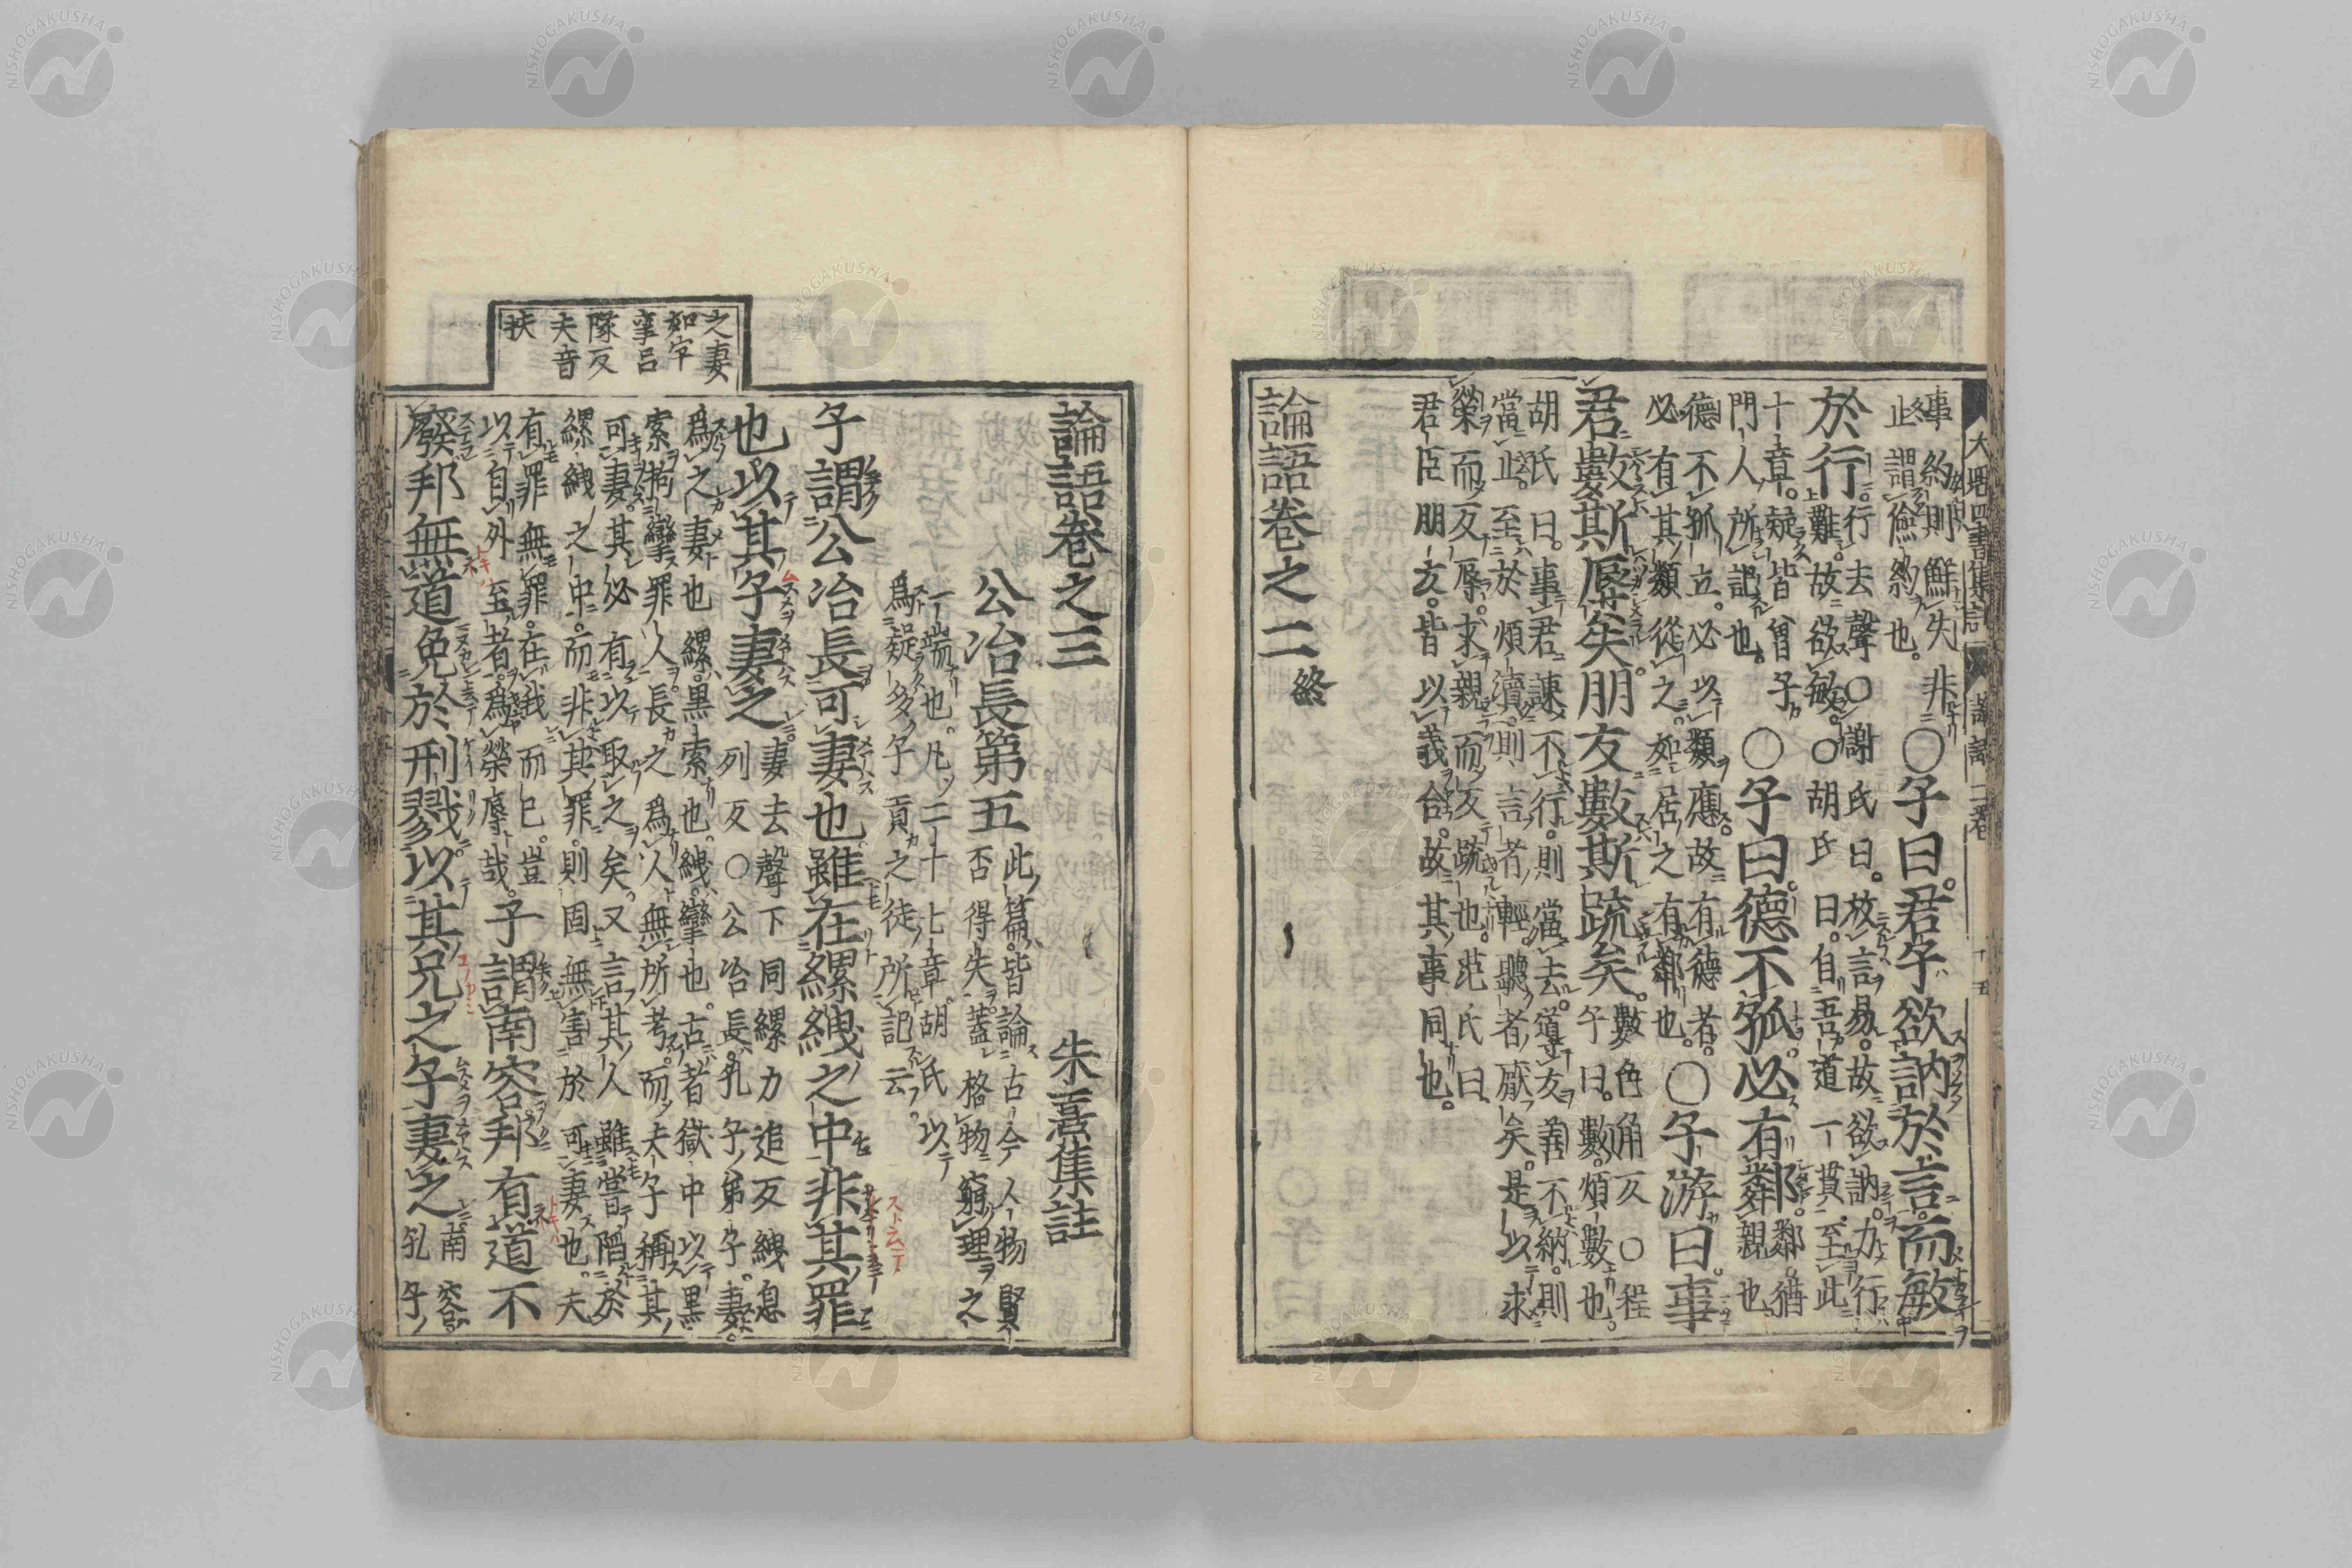 大魁四書集註
論語二卷
十五
事約則鮮失非
止謂儉約也。
○子曰。君子欲訥於言。而敏
於行。
行去聲○謝氏曰。放言易。故欲訥。力行
難。故欲敏。○胡氏曰。自吾道一貫。至此
十章。疑皆曾子
門人所記也。
○子曰。德不孤。必有鄰。
鄰。猶
親也
德不孤立。必以類應。故有德者。
必有其類從之。如居之有鄰也。
○子游曰。事
君數斯辱矣。朋友數斯疏矣。
數色角反○程
子曰。數。煩數也。
胡氏曰。事君諫不行。則當去。導友善不納。則
當止。至於煩瀆。則言者輕。聽者厭矣。是以求
榮而反辱。求親而反疏也。范氏曰
君臣朋友。皆以義合。故其事同也。
論語卷之二終
論語卷之三
朱熹集註
公冶長第五
此篇。皆論古今人物賢
否得失。蓋格物窮理之
一端也。凡二十七章。胡氏以
爲疑多子貢之徒所記云。
子謂公冶長可妻也。雖在縲絏之中。非其罪
也。以其子妻之
妻去聲下同縲力追反絏息
列反○公冶長。孔子弟子。妻。
爲之妻也縲。黑索也。絏。攣也。古者獄中以黑
索拘攣罪人。長之爲人無所考。而夫子稱其
可妻。其必有以取之矣。又言其人雖嘗陷於
縲絏之中。而非其罪。則固無害於可妻也。夫
有罪無罪。在我而已。豈
以自外至者。爲榮辱哉。
子謂南容邦有道不
廢邦無道免於刑戮。以其兄之子妻之
南容。
孔子
之妻
如字
孥呂
隊反
夫音
扶